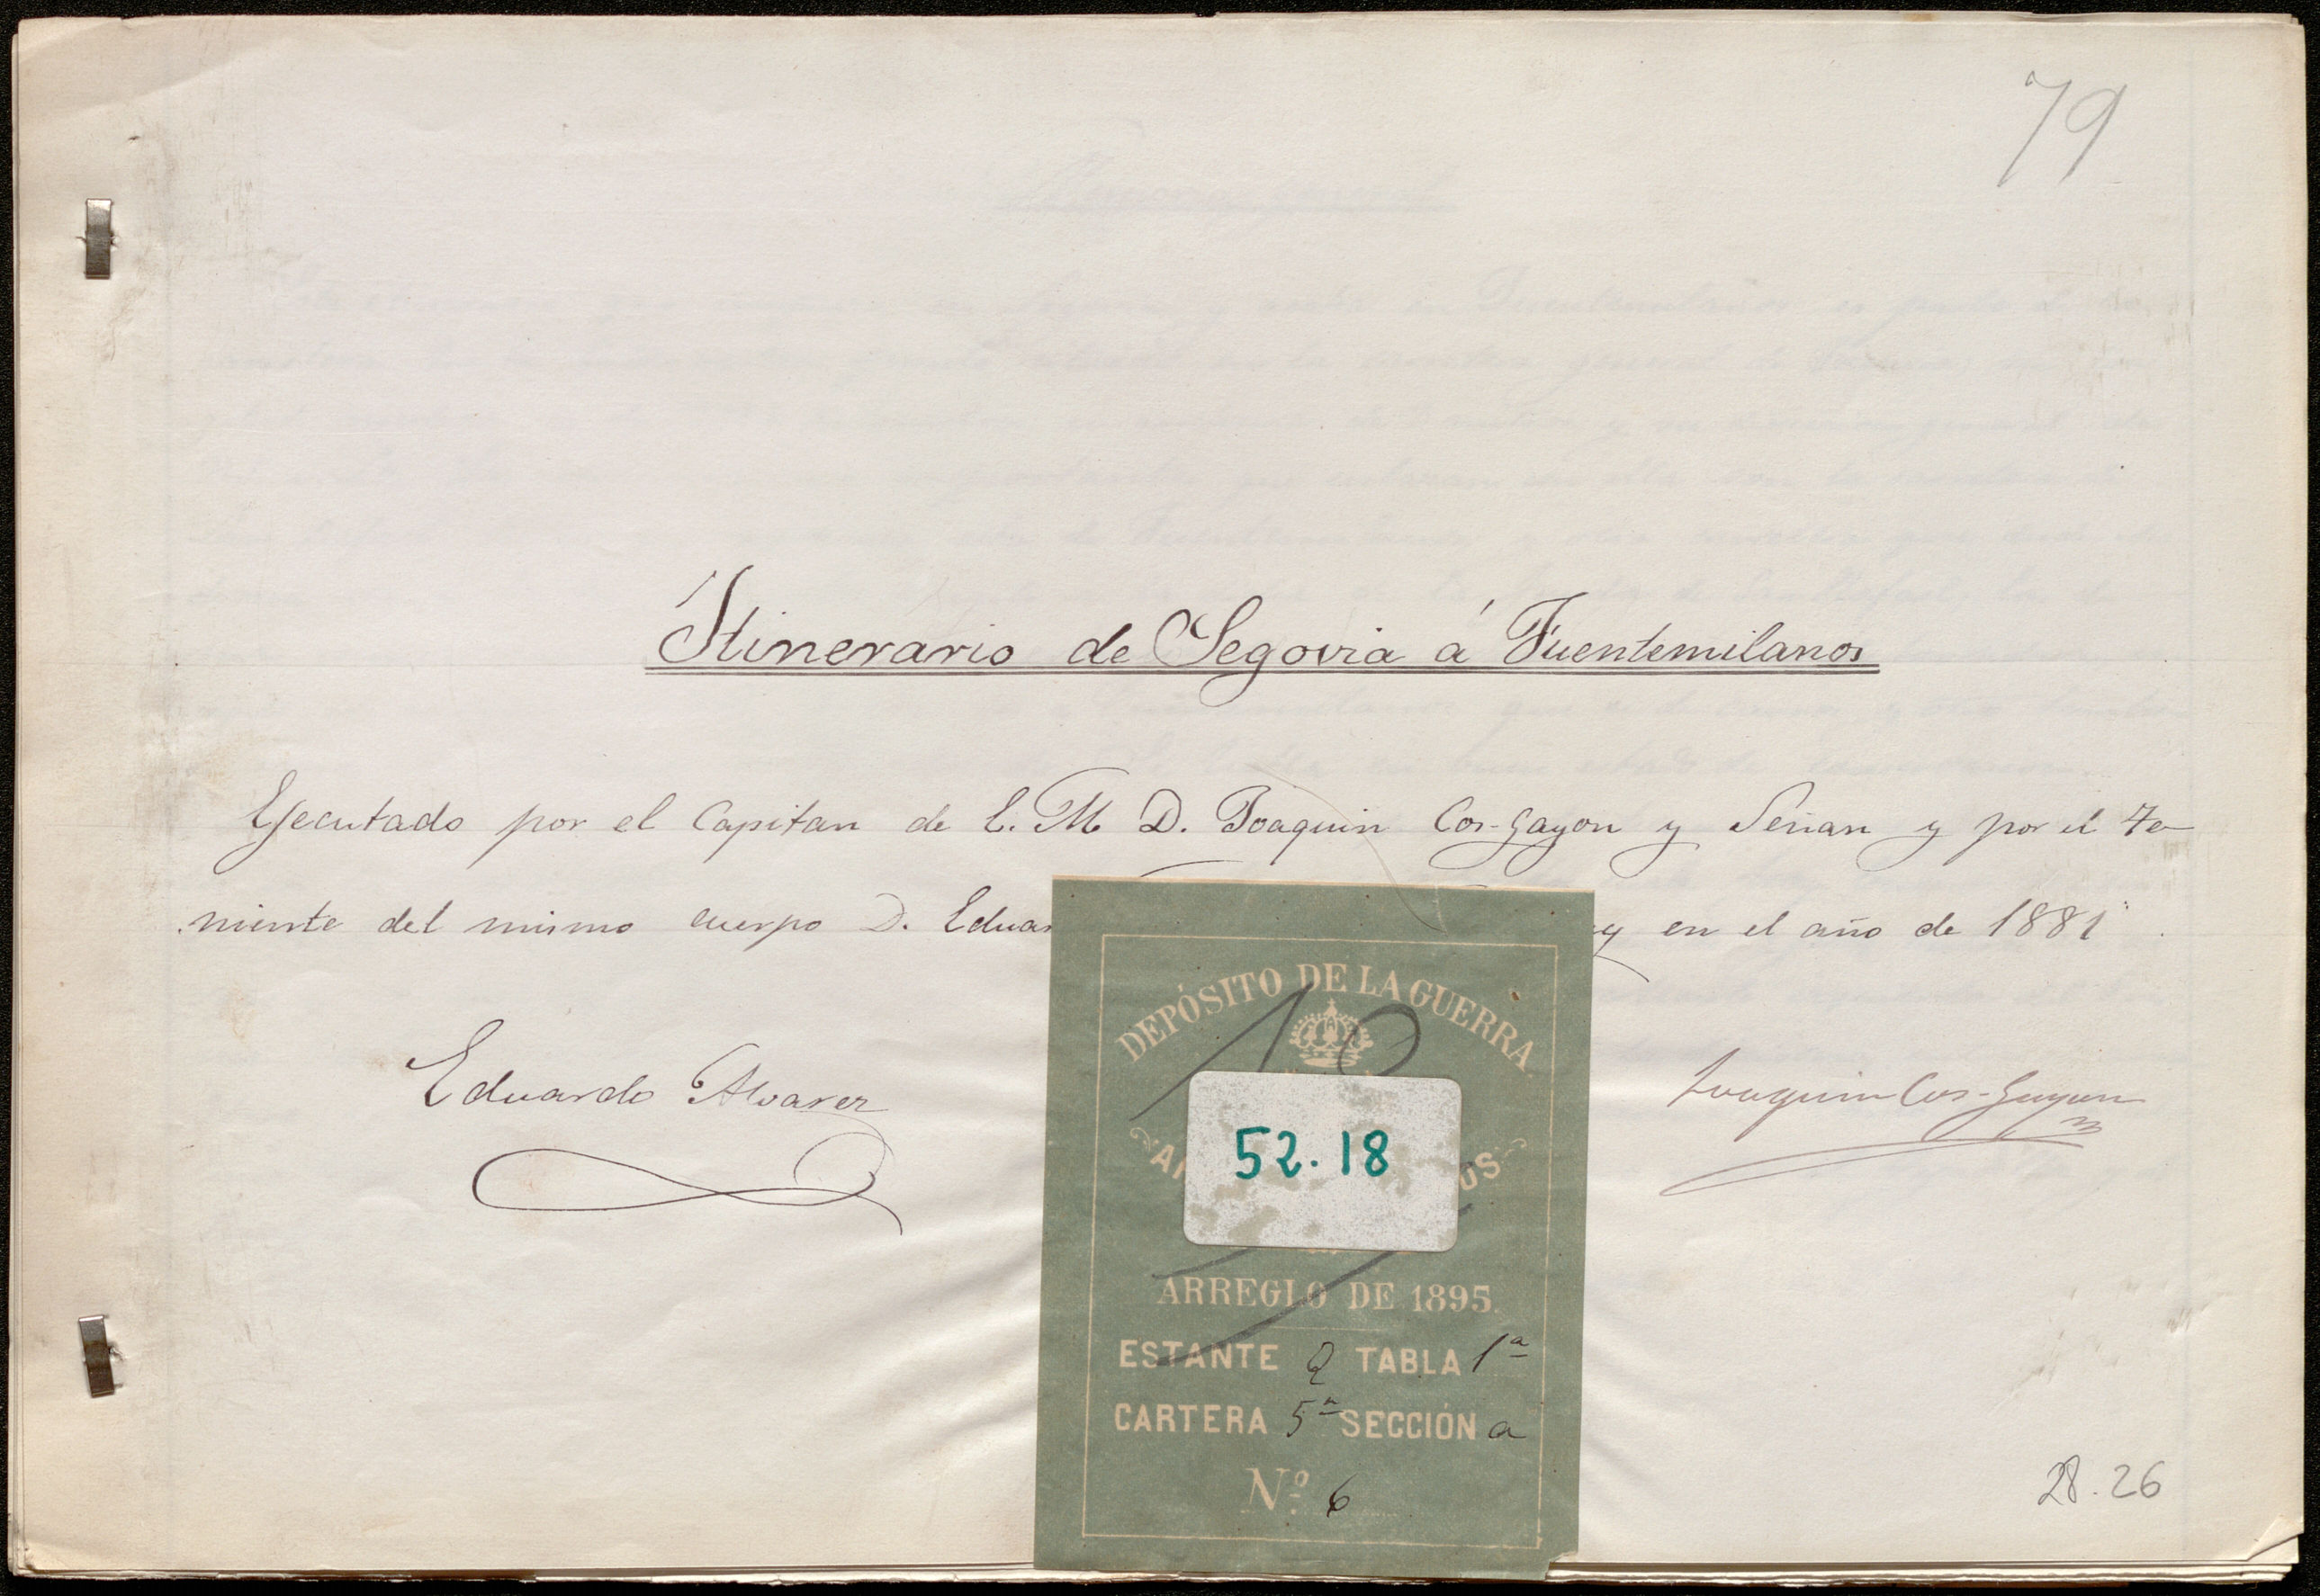 79
Itinerario de Segovia á Fuentemilanos
Ejecutado por el Capitan de E. M. D. Joaquin Cos-Gayon y Señan y por el Te-
niente del mismo cuerpo D. Eduar en el año de 1881
DEPÓSITO DE LA GUERRA
Eduardo Alvarez
Joaquin Cos-Gayon
52.18
ARREGLO DE 1895.
ESTANTE 2 TABLA 1ª
CARTERA 5ª SECCIÓN a
Nº 6
28.26